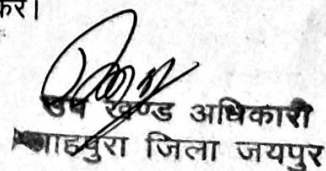 कर।
उप खण्ड अधिकारी
शाहपुरा जिला जयपुर